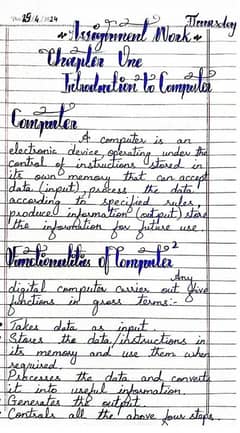 19/4/2024 Thursday
Assignment Work
Chapter One
Introduction to Computer
Computer
A computer is an
electronic device, operating under the
control of instructions stored in
its own memory that can accept
data (input), process the data
according to specified rules,
produce information (output), store
the information for future use.
Functionalities of Computer 2
Any
digital computer carries out five
functions in gross terms:-
• Takes data as input.
• Stores the data/instructions in
its memory and use them when
required.
• Processes the data and converts
it into useful information.
• Generates the output
• Controls all the above four steps.